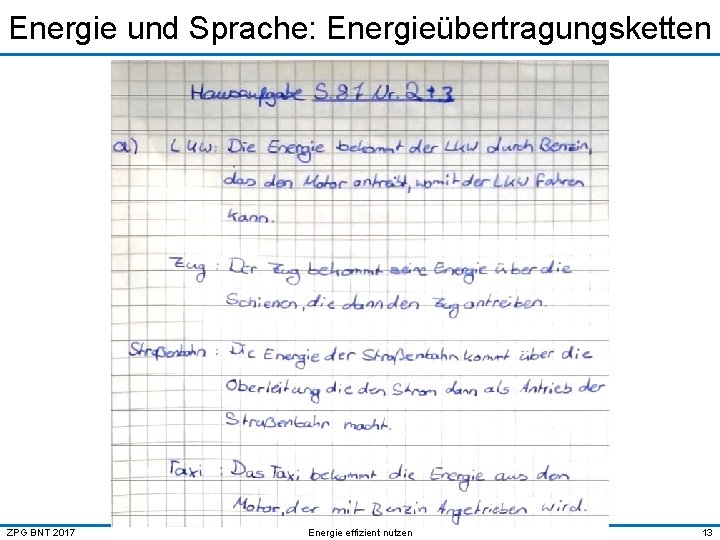 Energie und Sprache: Energieübertragungsketten
Hausaufgabe S.87 Nr. 2+3
a) LKW: Die Energie bekommt der LKW durch Benzin,
das den Motor antreibt, womit der LKW Fahren
kann.
Zug: Der Zug bekommt seine Energie über die
Schienen, die dann den Zug antreiben.
Straßenbahn: Die Energie der Straßenbahn kommt über die
Oberleitung die den Strom dann als Antrieb der
Straßenbahn macht.
Taxi: Das Taxi bekommt die Energie aus dem
Motor, der mit Benzin Angetrieben wird.
ZPG BNT 2017
Energie effizient nutzen
13